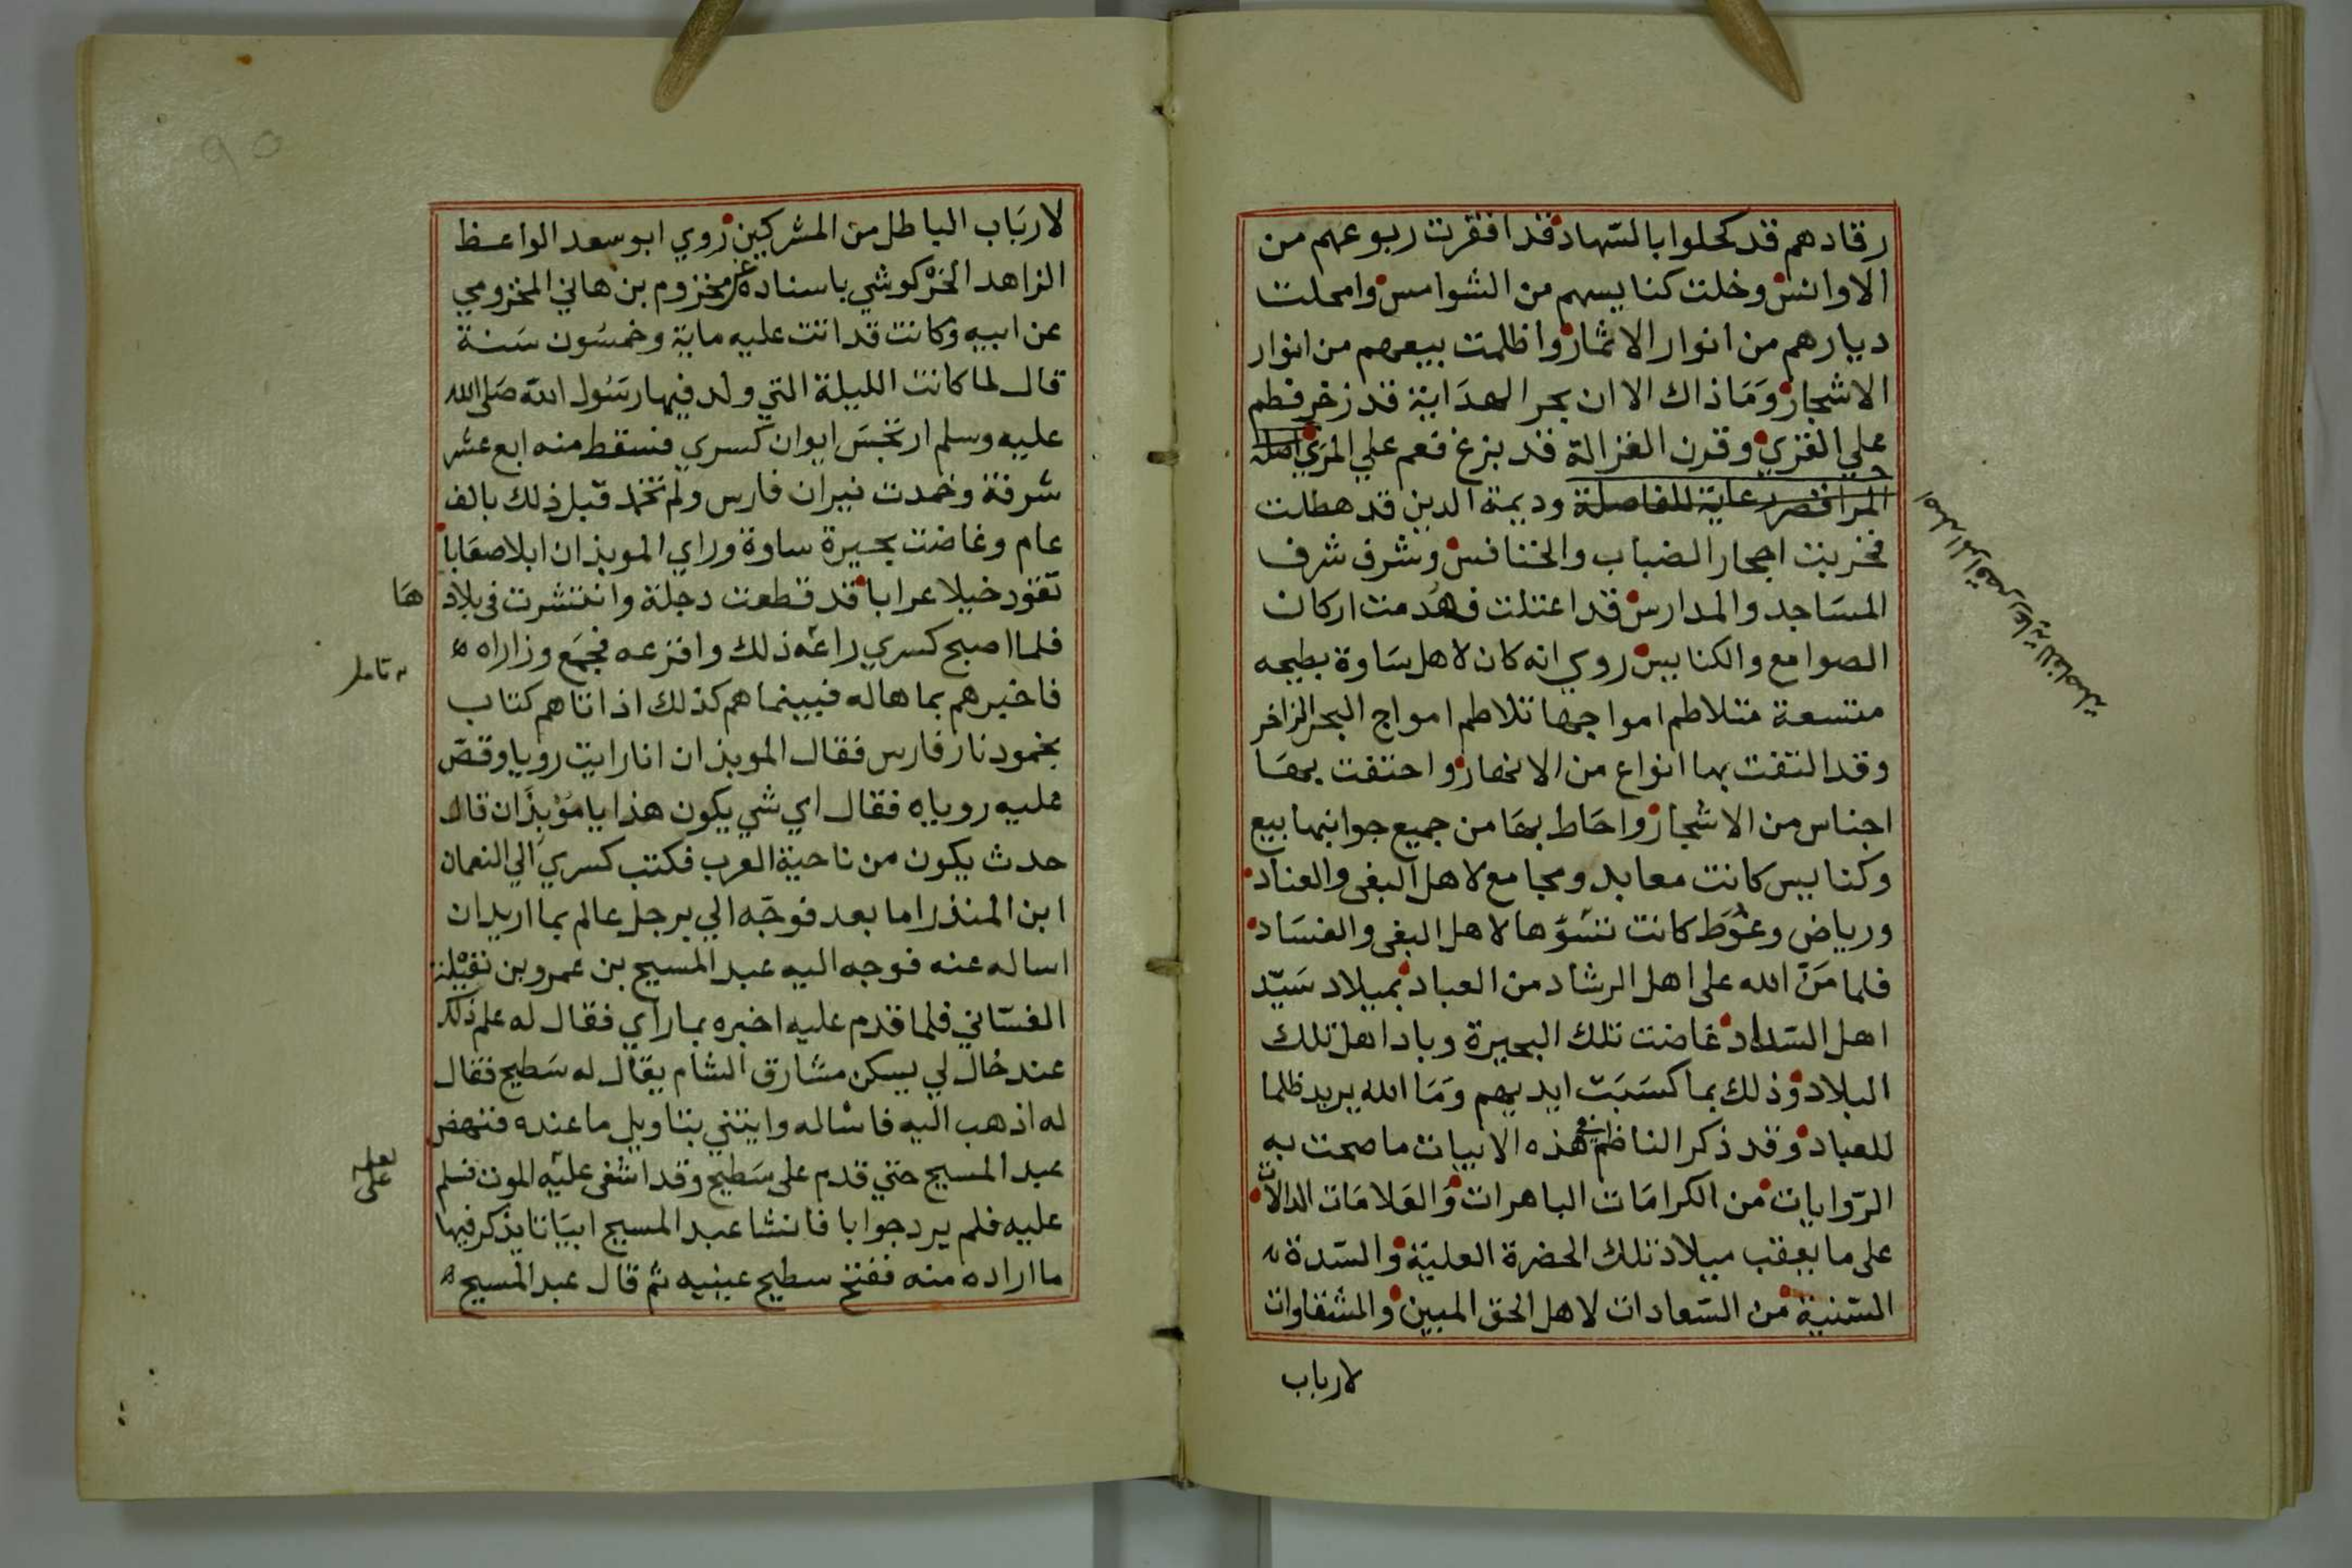 رقادهم قد كحلوا بالسهاد قد اقفرت ربوعهم من
الاوانس وخلت كنايسهم من الشوامس وامحلت
ديارهم من انوار الاثمار واظلمت بيعهم من انوار
الاشجار وَمَاذاك الا ان بحر الهدَاية قد زخر فطم
علي القزي وقرن الغزالة قد بزغ فعم علي المرَي اصله
المرافص رعاية للفاصلة وديمة الدين قد هطلت
فخربت اجحار الضباب والخنافس وشرف شرف
المسَاجد والمدارس قد اعتلت فهُدمت اركان
الصوامع والكنايس روي انه كان لاهل سَاوة بطيحه
متسعة متلاطم امواجها تلاطم امواج البحر الزاخر
وقد التفت بها انواع من الانهار واحتفت بهَا
اجناس من الاشجار واحَاط بهَا من جميع جوانبها بيع
وكنايس كانت معابد ومجامع لاهل البغى والعناد
ورياض وغُوَط كانت ننَسَّوّها لاهل البغى والفسَاد
فلما مَنّ الله على اهل الرشاد من العباد بميلاد سَيّد
اهل السّداد غاضت تلك البحيرة وباد اهل تلك
البلاد وذلك بما كسَبَت ايديهم وَمَا الله يريد ظلما
للعباد وقد ذكر الناظم في هذه الابيات ما صحت به
الرّوايات من الكرامَات الباهرات وَالعَلامَات الدالات
على ما يعقب ميلاد تلك الحضرة العليّة والسّدة
السّنية من السّعادات لاهل الحق المبين والشقاوات
لارباب
اصله المرافص رعاية للفاصلة
لاربَاب الباطل من المشركين زوي ابو سعد الواعظ
الزاهد الخَرْكوشي باسناده عن مخزوم بن هاني المخزومي
عن ابيه وكانت قد اتت عليه ماية وخمسُون سَنة
قال لما كانت الليلة التي ولد فيها رسَول الله صَلى الله
عليه وسلم ارتجسَ ايوان كسري فسقط منه اربع عشر
شرفة وخمدت نيران فارس ولم تخمد قبل ذلك بالف
عام وغاضت بحيرة ساوة وراي الموبذان ابلا صعَابا
تقود خيلا عرابا قد قطعت دجلة وانتشرت فى بلاد
هَا
فلما اصبح كسري راعَه ذلك وافزعه فجمَع وزاراه
تامل
فاخبرهم بما هاله فبينما هم كذلك اذ اتاهم كتاب
بخمود نار فارس فقال الموبذان انا رايت رويا وقصّ
عليه روياه فقال اي شي يكون هذا يا مُوْبِذَان قال
حدث يكون من ناحية العرب فكتب كسري الي النعمان
ابن المنذر اما بعد فوجّه الي برجل عالم بما اريد ان
اساله عنه فوجه اليه عبد المسيح بن عمرو بن نفيْلة
الغسّاني فلما قدم عليه اخبره بما رآي فقال له علم ذلك
عند خال لي يسكن مشَارق الشام يقال له سَطيح فقال
له اذهب اليه فاسْاله وايتني بتاويل ما عنده فنهض
عبد المسيح حتي قدم على سَطيح وقد اشفى عليَه الموت فسلم
لعله
على
عليه فلم يرد جوابا فانشا عبد المسيح ابيَاتا يذكر فيها
ما اراده منه ففتح سطيح عينيه ثم قال عبد المسيح